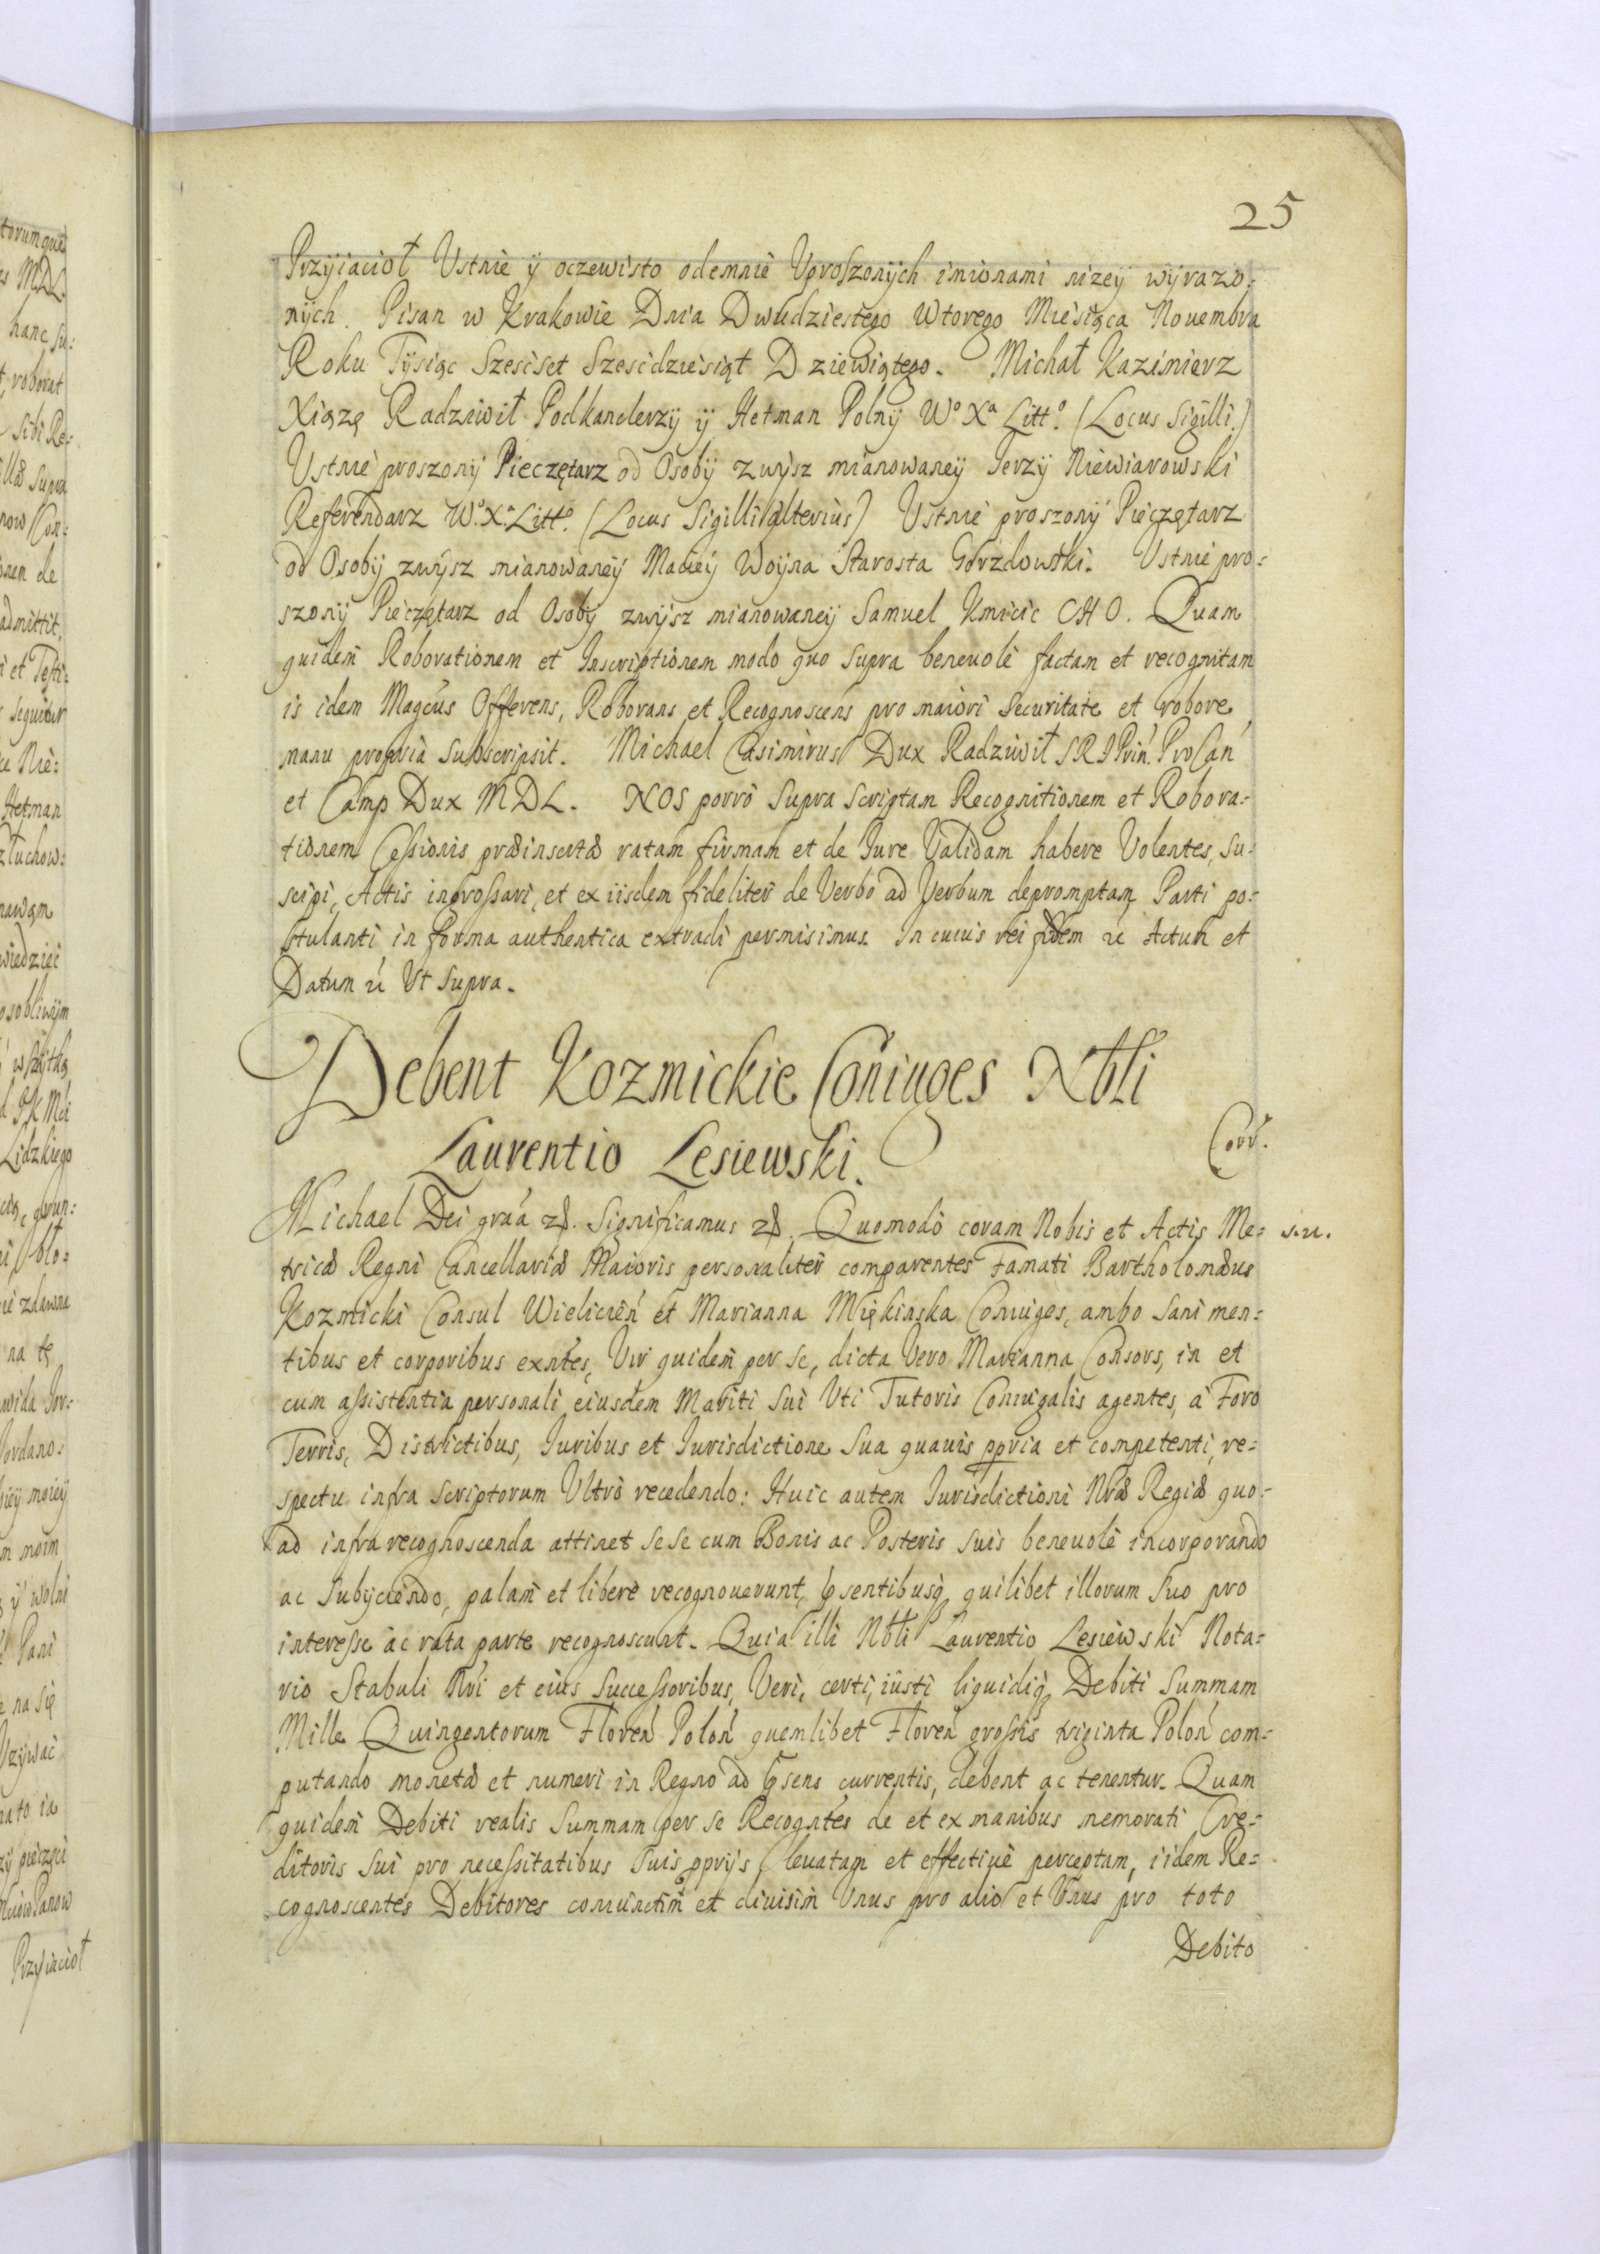 25
Przyiacioł Ustnie ÿ oczewisto odemnie Uproszonÿch imionami niżeÿ wÿrażo-
nÿch. Pisan w Krakowie Dnia Dwudziestego Wtorego Miesiąca Nouembra
Roku Tÿsiąc Szescset Szescdziesiąt Dziewiątego. Michał Kazimierz
Xiązę Radziwił Podkanclerzÿ ÿ Hetman Polnÿ Wº Xª Littº. (Locus Sigilli.)
Ustnie proszonÿ Pieczętarz od Osobÿ zwÿsz mianowaneÿ Jerzÿ Niewiarowski
Referendarz Wº. Xª Littº. (Locus Sigilli alterius) Ustnie proszonÿ Pieczętarz
od Osobÿ zwÿsz mianowaneÿ Macieÿ Woÿna Starosta Gorzdowski. Ustnie pro-
szonÿ Pieczętarz od Osobÿ zwÿsz mianowaneÿ Samuel Kmicic CHO. Quam
quidem Roborationem et Inscriptionem modo quo supra beneuole factam et recognitam
is idem Magcus Offerens, Roborans et Recognoscens pro maiori securitate et robore
manu propria subscripsit. Michael Casimirus Dux Radziwił SRI Prin ProCan
et Camp Dux MDL. NOS porro supra scriptam Recognitionem et Robora-
tionem Cessionis præinsertæ ratam firmam et de Iure Validam habere Volentes, su-
scipi, Actis ingrossari, et ex iisdem fideliter de Verbo ad Verbum depromptam Parti po-
stulanti in forma authentica extradi permisimus. In cuius rei fidem Actum et
Datum Ut supra.
Debent Kozmickie Coniuges Nbli
Laurentio Lesiewski.
Corr.
Michael Dei graa Significamus Quomodo coram Nobis et Actis Me-
tricæ Regni Cancellariæ Maioris personaliter comparentes Famati Bartholomæus
Kozmicki Consul Wielicien et Marianna Miękinska Coniuges, ambo sani men-
tibus et corporibus exntes, Vir quidem per se, dicta Vero Marianna Consors, in et
cum assistentia personali eiusdem Mariti sui Uti Tutoris Coniugalis agentes, a Foro
Terris, Districtibus, Iuribus et Iurisdictione sua quauis ppria et competenti, re-
spectu infra scriptorum Ultro recedendo: Huic autem Iurisdictioni Nræ Regiæ quo-
ad infra recognoscenda attinet sese cum Bonis ac Posteris suis beneuole incorporando
ac subÿciendo, palam et libere recognouerunt, psentibusq quilibet illorum suo pro
interesse ac rata parte recognoscunt. Quia illi Nbli Laurentio Lesiewski Nota-
rio Stabuli Nri et eius Successoribus, Veri, certi, iusti liquidiq Debiti summam
Mille Quingentorum Floren Polon quemlibet Floren grossis triginta Polon com-
putando monetæ et numeri in Regno ad psens currentis, debent ac tenentur. Quam
quidem Debiti realis summam per se Recogntes de et ex manibus memorati Cre-
ditoris sui pro necessitatibus suis pprÿs leuatam et effectiue perceptam, iidem Re-
cognoscentes Debitores coniunctim et diuisim Unus pro alio et Unus pro toto
Debito